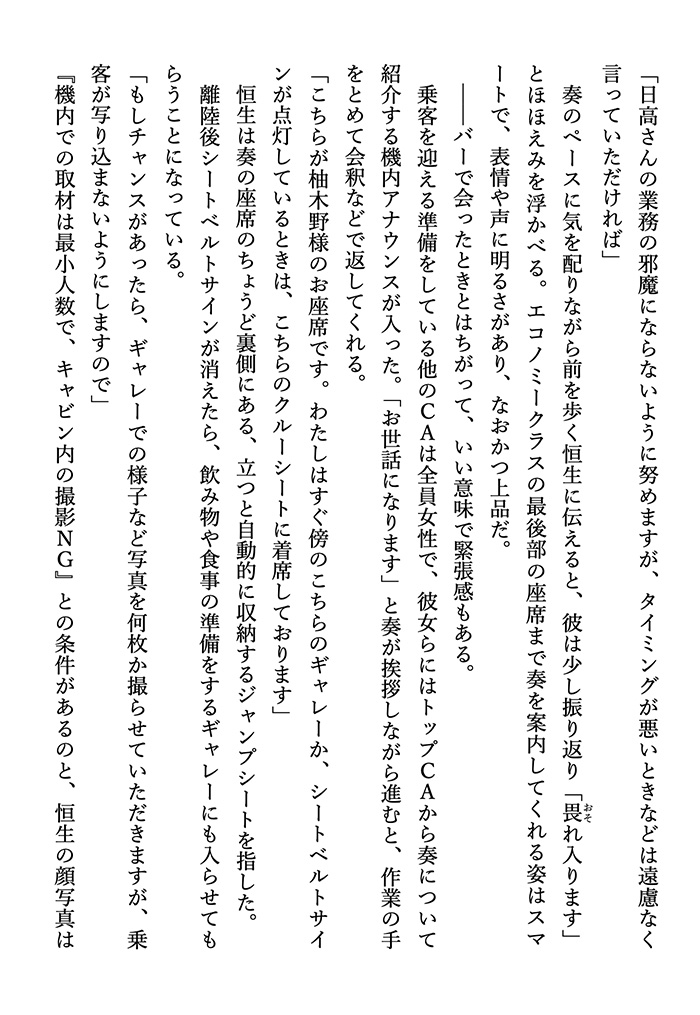 「日高さんの業務の邪魔にならないように努めますが、タイミングが悪いときなどは遠慮なく
言っていただければ」
　奏のペースに気を配りながら前を歩く恒生に伝えると、彼は少し振り返り「畏れ入ります」
おそ
とほほえみを浮かべる。エコノミークラスの最後部の座席まで奏を案内してくれる姿はスマ
ートで、表情や声に明るさがあり、なおかつ上品だ。
　――バーで会ったときとはちがって、いい意味で緊張感もある。
　乗客を迎える準備をしている他のCAは全員女性で、彼女らにはトップCAから奏について
紹介する機内アナウンスが入った。「お世話になります」と奏が挨拶しながら進むと、作業の手
をとめて会釈などで返してくれる。
「こちらが柚木野様のお座席です。わたしはすぐ傍のこちらのギャレーか、シートベルトサイ
ンが点灯しているときは、こちらのクルーシートに着席しております」
　恒生は奏の座席のちょうど裏側にある、立つと自動的に収納するジャンプシートを指した。
　離陸後シートベルトサインが消えたら、飲み物や食事の準備をするギャレーにも入らせても
らうことになっている。
「もしチャンスがあったら、ギャレーでの様子など写真を何枚か撮らせていただきますが、乗
客が写り込まないようにしますので」
『機内での取材は最小人数で、キャビン内の撮影NG』との条件があるのと、恒生の顔写真は